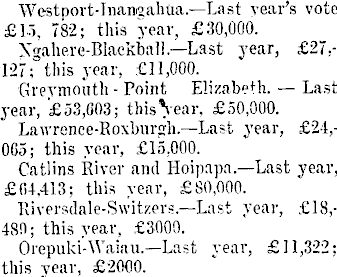 Westport-Inangahua.—Last year's vote
£15, 782; this year, £30,000.
Ngahere-Blackball.—Last year, £27,-
127; this year, £11,000.
Greymouth - Point Elizabeth. — Last
year, £53,603; this year, £50,000.
Lawrence-Roxburgh.—Last year, £24,-
065; this year, £15,000.
Catlins River and Hoipapa.—Last year,
£64,413; this year, £80,000.
Riversdale-Switzers.—Last year, £18,-
489; this year, £3000.
Orepuki-Waiau.—Last year, £11,322;
this year, £2000.